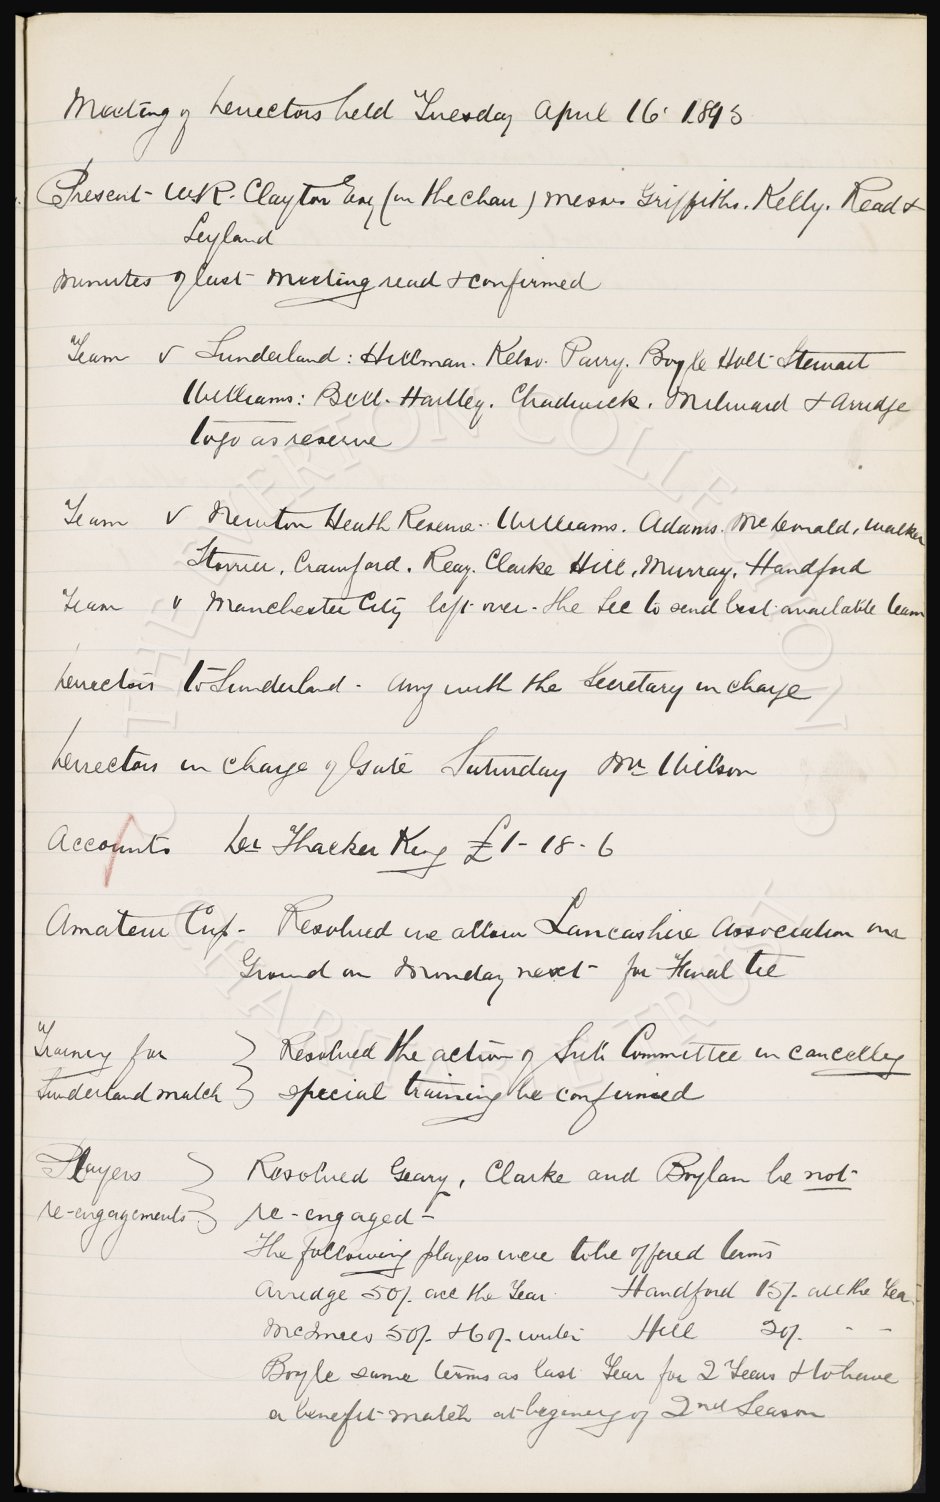 Meeting of Directors held Tuesday April 16. 1895
Present - W.R. Clayton Esq (in the chair) Messrs Griffiths. Kelly. Read &
Leyland
Minutes of last meeting read & confirmed
Team v Sunderland: Hillman. Kelso. Parry. Boyle Holt Stewart
Williams: Bell. Hartley. Chadwick. Milward & Arridge
to go as reserve
Team v Newton Heath Reserve. Williams. Adams. McDonald, Walker
Storrier, Crawford. Reay. Clarke Hill, Murray, Handford
Team v Manchester City left over - the Sec to send best available team
Directors to Sunderland - Any with the Secretary in charge
Directors in charge of Gate Saturday Mr Wilson
Accounts Dr Thacker King £1-18-6
Amateur Cup - Resolved we allow Lancashire Association our
Ground on Monday next for Final tie
Training for } Resolved the action of Sub Committee in cancelleg
Sunderland match } special training be confirmed
Players } Resolved Geary, Clarke and Boylan be not
re-engagements } re-engaged -
The following players were to be offered terms
Arridge 50/- all the Year Handford 15/- all the Year
McInnes 50/- & 60/- winter Hill 20/- - -
Boyle same terms as last Year for 2 Years & to have
a benefit match at begineng of 2nd Season
THE EVERTON COLLECTION
CHARITABLE TRUST